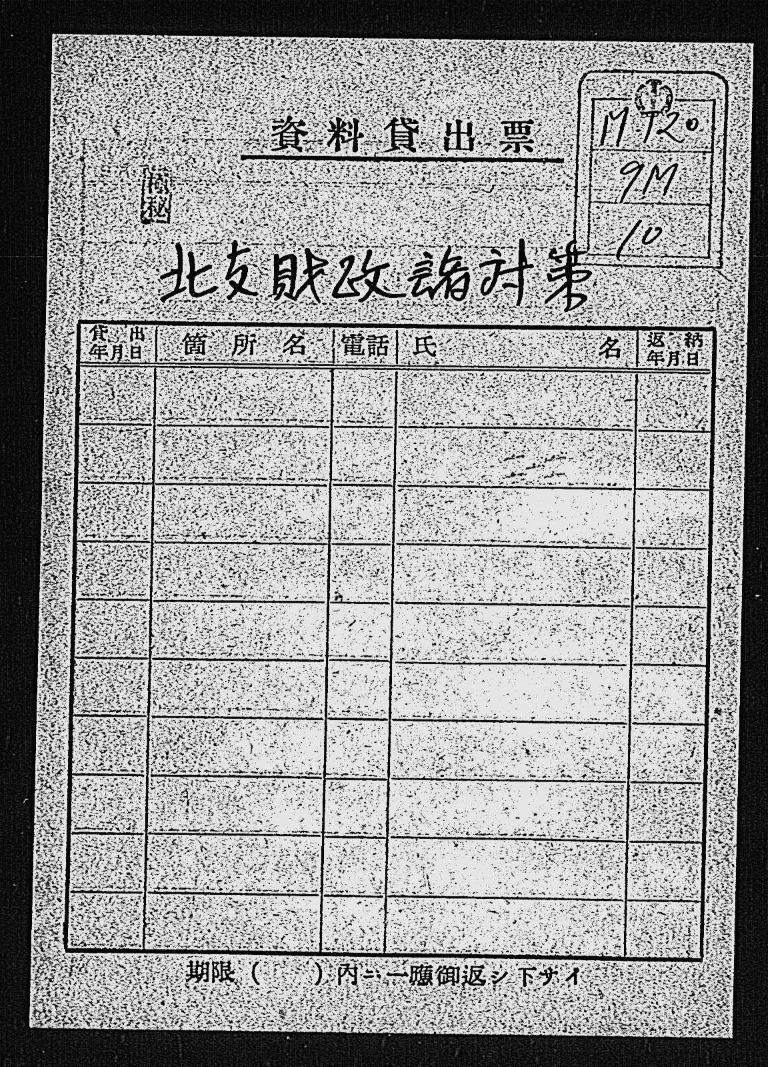 資料貸出票
MT20
9M
10
極秘
北支財政諸対策
貸出年月日 箇所名 電話 氏名 返納年月日
期限（　　）内ニ一応御返シ下サイ